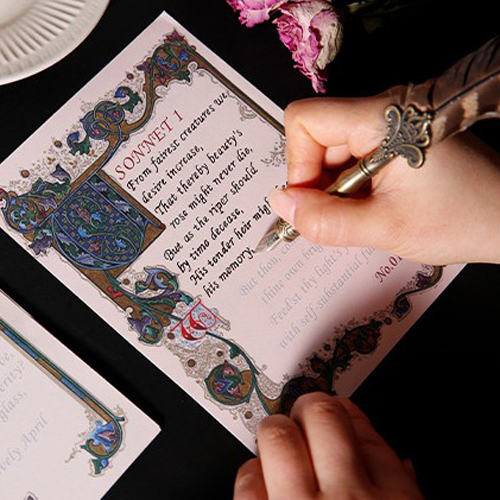 SONNET 1
From fairest creatures we
desire increase,
That thereby beauty's
rose might never die,
But as the riper should
by time decease,
His tender heir might
his memory
But thou,
thine own brig
Feedst thy light's
with self-substantial fu
No.01
glass,
ovely April